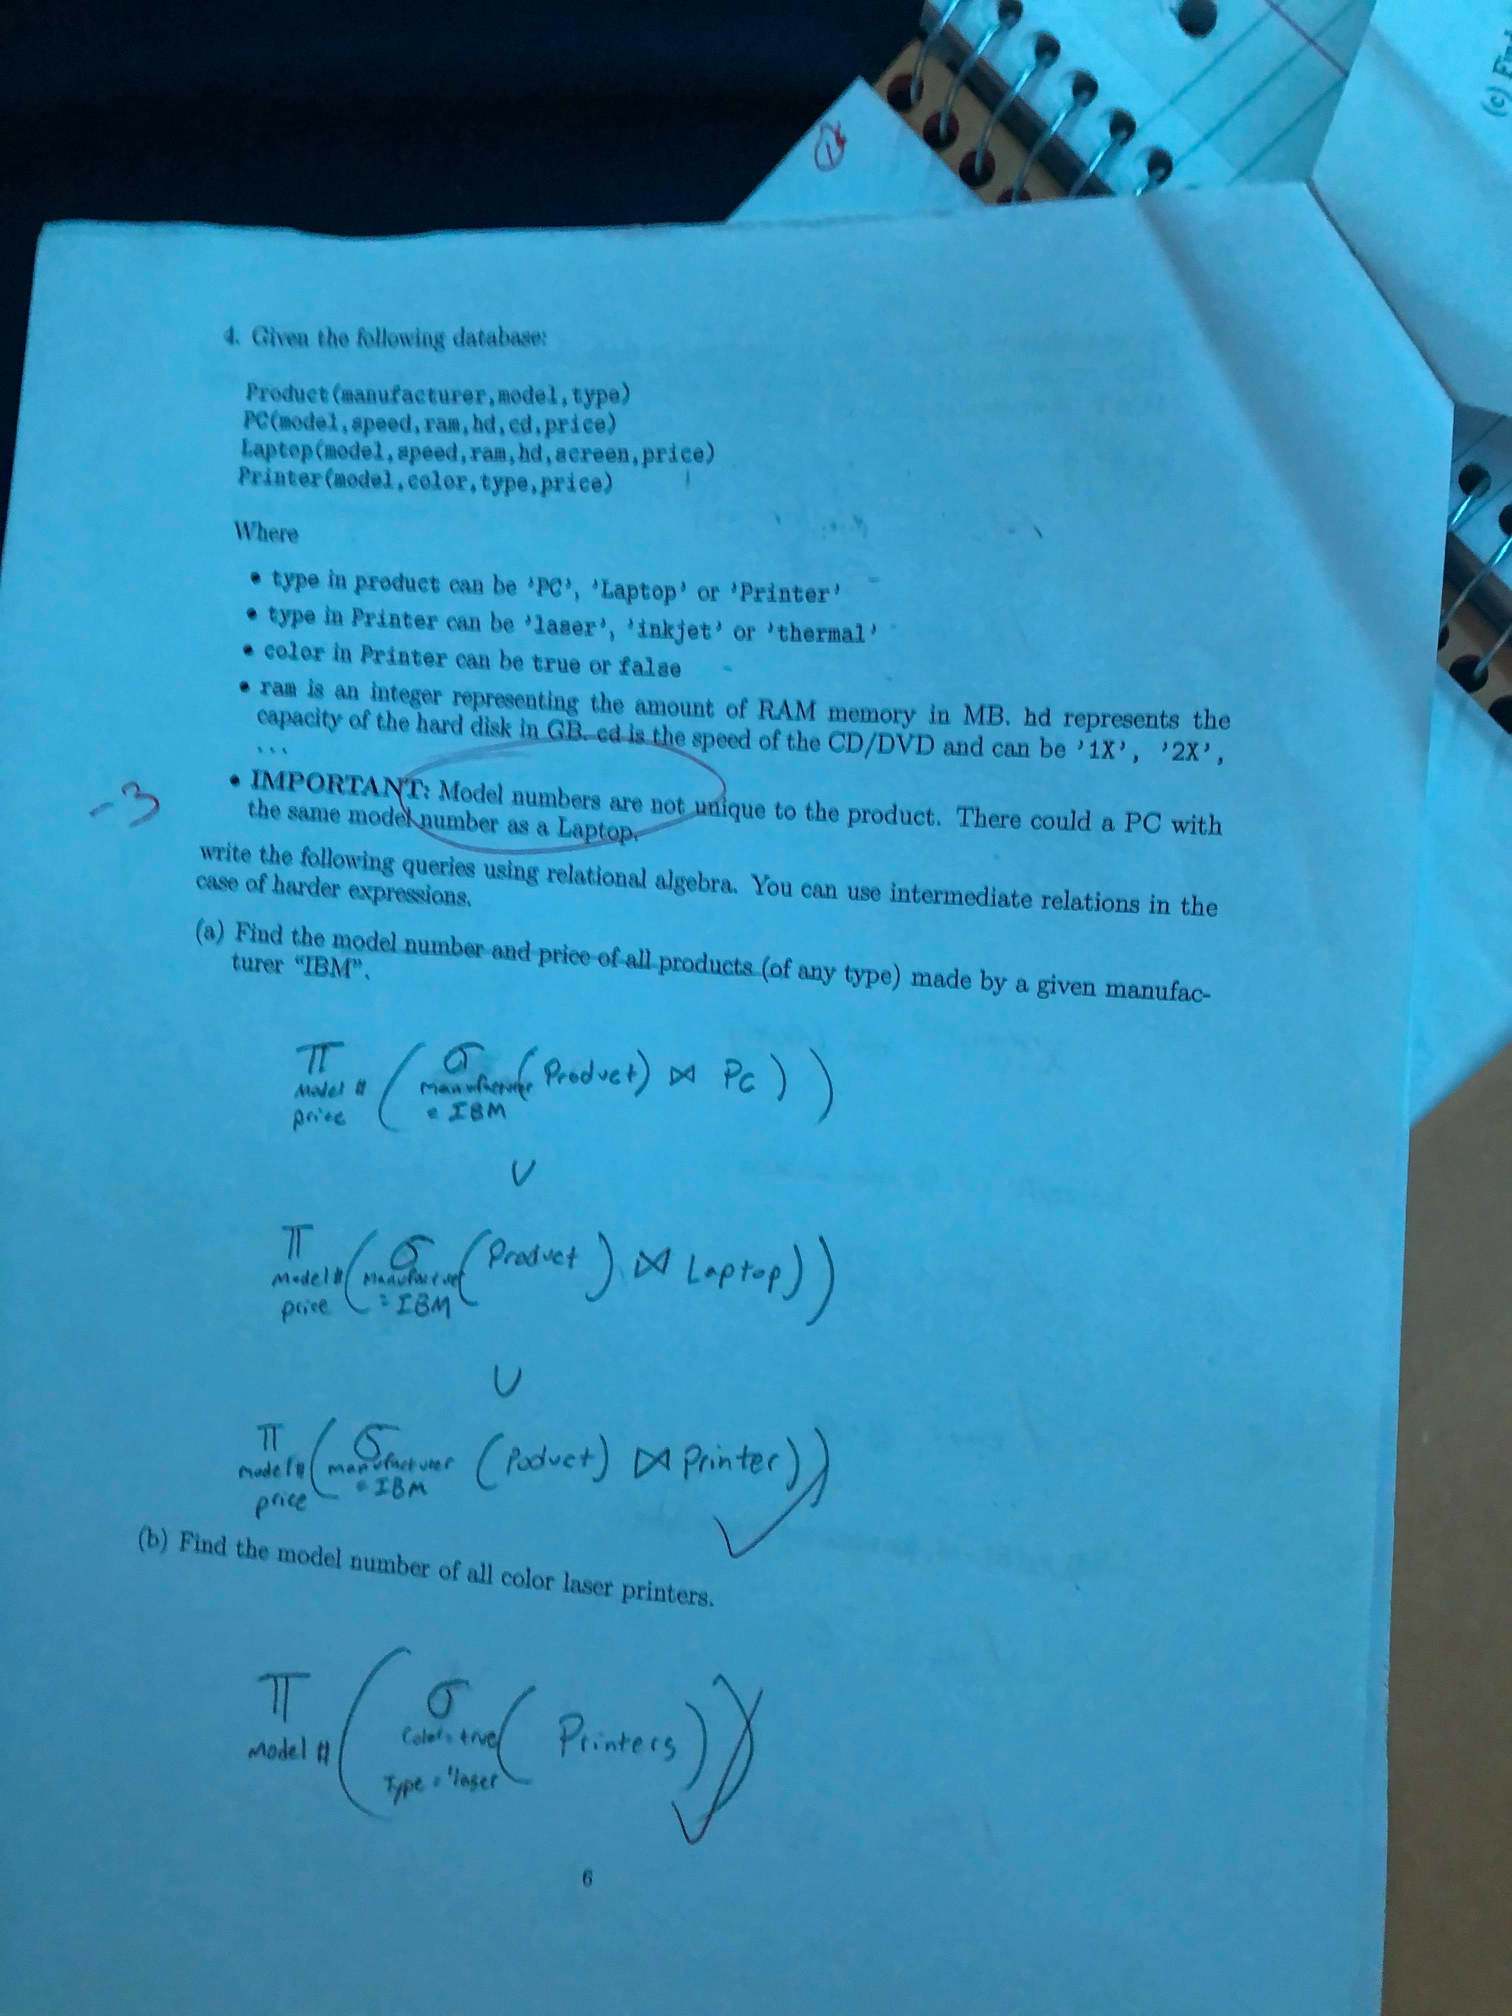 (c) Fin
1
4. Given the following database:
Product(manufacturer,model,type)
PC(model,speed,ram,hd,cd,price)
Laptop(model,speed,ram,hd,screen,price)
Printer(model,color,type,price)
Where
• type in product can be 'PC', 'Laptop' or 'Printer'
• type in Printer can be 'laser', 'inkjet' or 'thermal'
• color in Printer can be true or false
• ram is an integer representing the amount of RAM memory in MB. hd represents the
capacity of the hard disk in GB. cd is the speed of the CD/DVD and can be '1X', '2X',
...
-3
• IMPORTANT: Model numbers are not unique to the product. There could a PC with
the same model number as a Laptop.
write the following queries using relational algebra. You can use intermediate relations in the
case of harder expressions.
(a) Find the model number and price of all products (of any type) made by a given manufac-
turer “IBM”.
π ( σ (Product) ⋈ PC ) )
Model # manufacturer
price = IBM
∪
π ( σ (Product) ⋈ Laptop) )
Model # Manufacturer
price = IBM
∪
π ( σ (Poduct) ⋈ Printer) )
model # manufacturer
price = IBM
(b) Find the model number of all color laser printers.
π ( σ ( Printers ) )
Model # Color = true
Type = 'laser
6